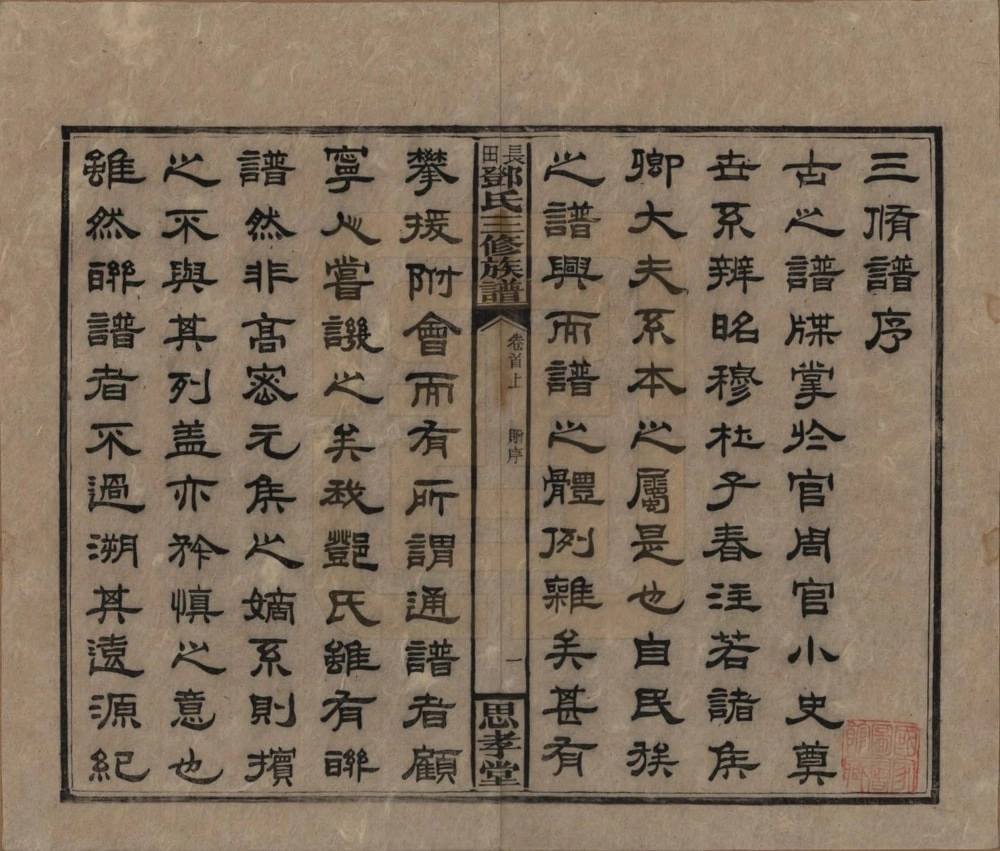 三脩譜序
古之譜牒掌於官周官小史奠
世系辨昭穆杜子春注若諸矦
卿大夫系本之屬是也自民族
之譜興而譜之體例雜矣甚有
長田鄧氏三修族譜
卷首上
序
一
思孝堂
攀援附會而有所謂通譜者顧
寧人嘗譏之矣我鄧氏雖有聯
譜然非高密元矦之嫡系則擯
之不與其列盖亦矜慎之意也
雖然聯譜者不過溯其遠源紀